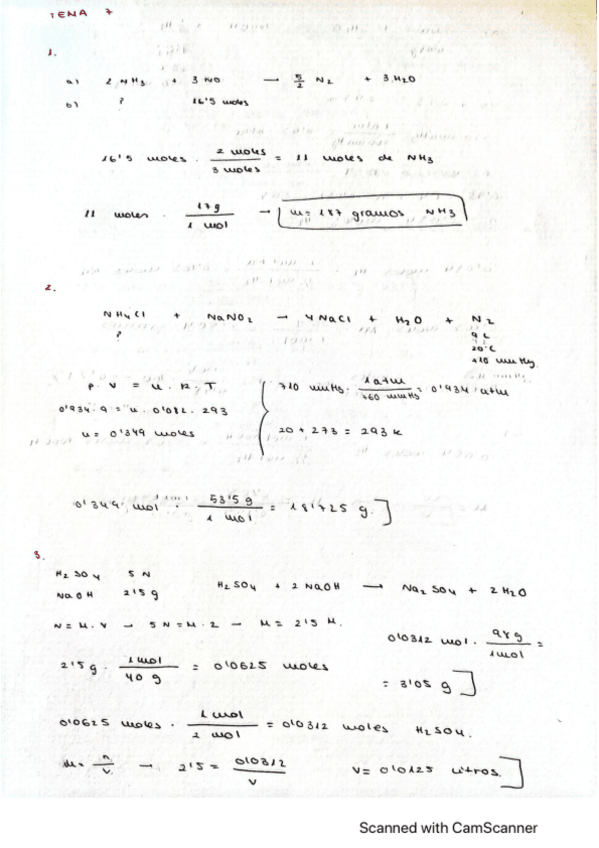 TEMA 7
1.
a) 2 NH3 + 3 NO → 5/2 N2 + 3 H2O
b) ? 16'5 moles
16'5 moles · 2 moles / 3 moles = 11 moles de NH3
11 moles · 17g / 1 mol → m = 187 gramos NH3
2.
NH4Cl + NaNO2 → 4 NaCl + H2O + N2
? 9 L
20°C
710 mmHg
P · V = n · R · T
0'934 · 9 = n · 0'082 · 293
n = 0'349 moles
710 mmHg · 1 atm / 760 mmHg = 0'934 atm
20 + 273 = 293 K
0'349 mol · 53'5 g / 1 mol = 18'725 g.
3.
H2SO4 5 N
NaOH 2'5g
H2SO4 + 2 NaOH → Na2SO4 + 2 H2O
N = M · V → 5 N = M · 2 → M = 2'5 M.
2'5 g · 1 mol / 40 g = 0'0625 moles
0'0312 mol · 98 g / 1 mol =
= 3'05 g
0'0625 moles · 1 mol / 2 mol = 0'0312 moles H2SO4.
M = n / V → 2'5 = 0'0312 / V V = 0'0125 litros.
Scanned with CamScanner